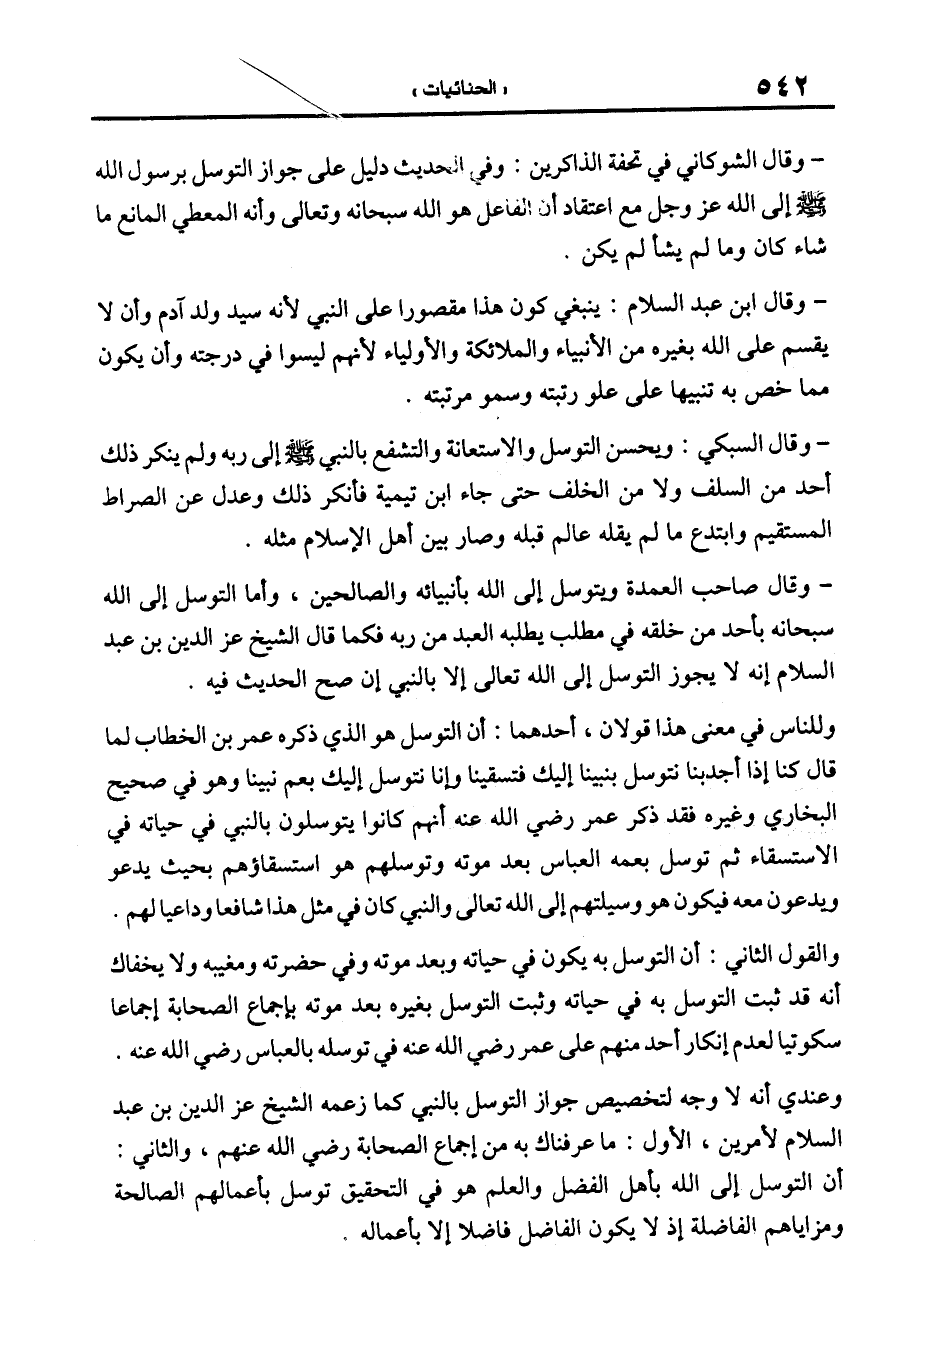 ٥٤٢
« الحنائيات »
– وقال الشوكاني في تحفة الذاكرين : وفي الحديث دليل على جواز التوسل برسول الله
ﷺ إلى الله عز وجل مع اعتقاد أن الفاعل هو الله سبحانه وتعالى وأنه المعطي المانع ما
شاء كان وما لم يشأ لم يكن .
– وقال ابن عبد السلام : ينبغي كون هذا مقصورا على النبي لأنه سيد ولد آدم وأن لا
يقسم على الله بغيره من الأنبياء والملائكة والأولياء لأنهم ليسوا في درجته وأن يكون
مما خص به تنبيها على علو رتبته وسمو مرتبته .
– وقال السبكي : ويحسن التوسل والاستعانة والتشفع بالنبي ﷺ إلى ربه ولم ينكر ذلك
أحد من السلف ولا من الخلف حتى جاء ابن تيمية فأنكر ذلك وعدل عن الصراط
المستقيم وابتدع ما لم يقله عالم قبله وصار بين أهل الإسلام مثله .
– وقال صاحب العمدة ويتوسل إلى الله بأنبيائه والصالحين ، وأما التوسل إلى الله
سبحانه بأحد من خلقه في مطلب يطلبه العبد من ربه فكما قال الشيخ عز الدين بن عبد
السلام إنه لا يجوز التوسل إلى الله تعالى إلا بالنبي إن صح الحديث فيه .
وللناس في معنى هذا قولان ، أحدهما : أن التوسل هو الذي ذكره عمر بن الخطاب لما
قال كنا إذا أجدبنا نتوسل بنبينا إليك فتسقينا وإنا نتوسل إليك بعم نبينا وهو في صحيح
البخاري وغيره فقد ذكر عمر رضي الله عنه أنهم كانوا يتوسلون بالنبي في حياته في
الاستسقاء ثم توسل بعمه العباس بعد موته وتوسلهم هو استسقاؤهم بحيث يدعو
ويدعون معه فيكون هو وسيلتهم إلى الله تعالى والنبي كان في مثل هذا شافعا وداعيا لهم .
والقول الثاني : أن التوسل به يكون في حياته وبعد موته وفي حضرته ومغيبه ولا يخفاك
أنه قد ثبت التوسل به في حياته وثبت التوسل بغيره بعد موته بإجماع الصحابة إجماعا
سكوتيا لعدم إنكار أحد منهم على عمر رضي الله عنه في توسله بالعباس رضي الله عنه .
وعندي أنه لا وجه لتخصيص جواز التوسل بالنبي كما زعمه الشيخ عز الدين بن عبد
السلام لأمرين ، الأول : ما عرفناك به من إجماع الصحابة رضي الله عنهم ، والثاني :
أن التوسل إلى الله بأهل الفضل والعلم هو في التحقيق توسل بأعمالهم الصالحة
ومزاياهم الفاضلة إذ لا يكون الفاضل فاضلا إلا بأعماله .